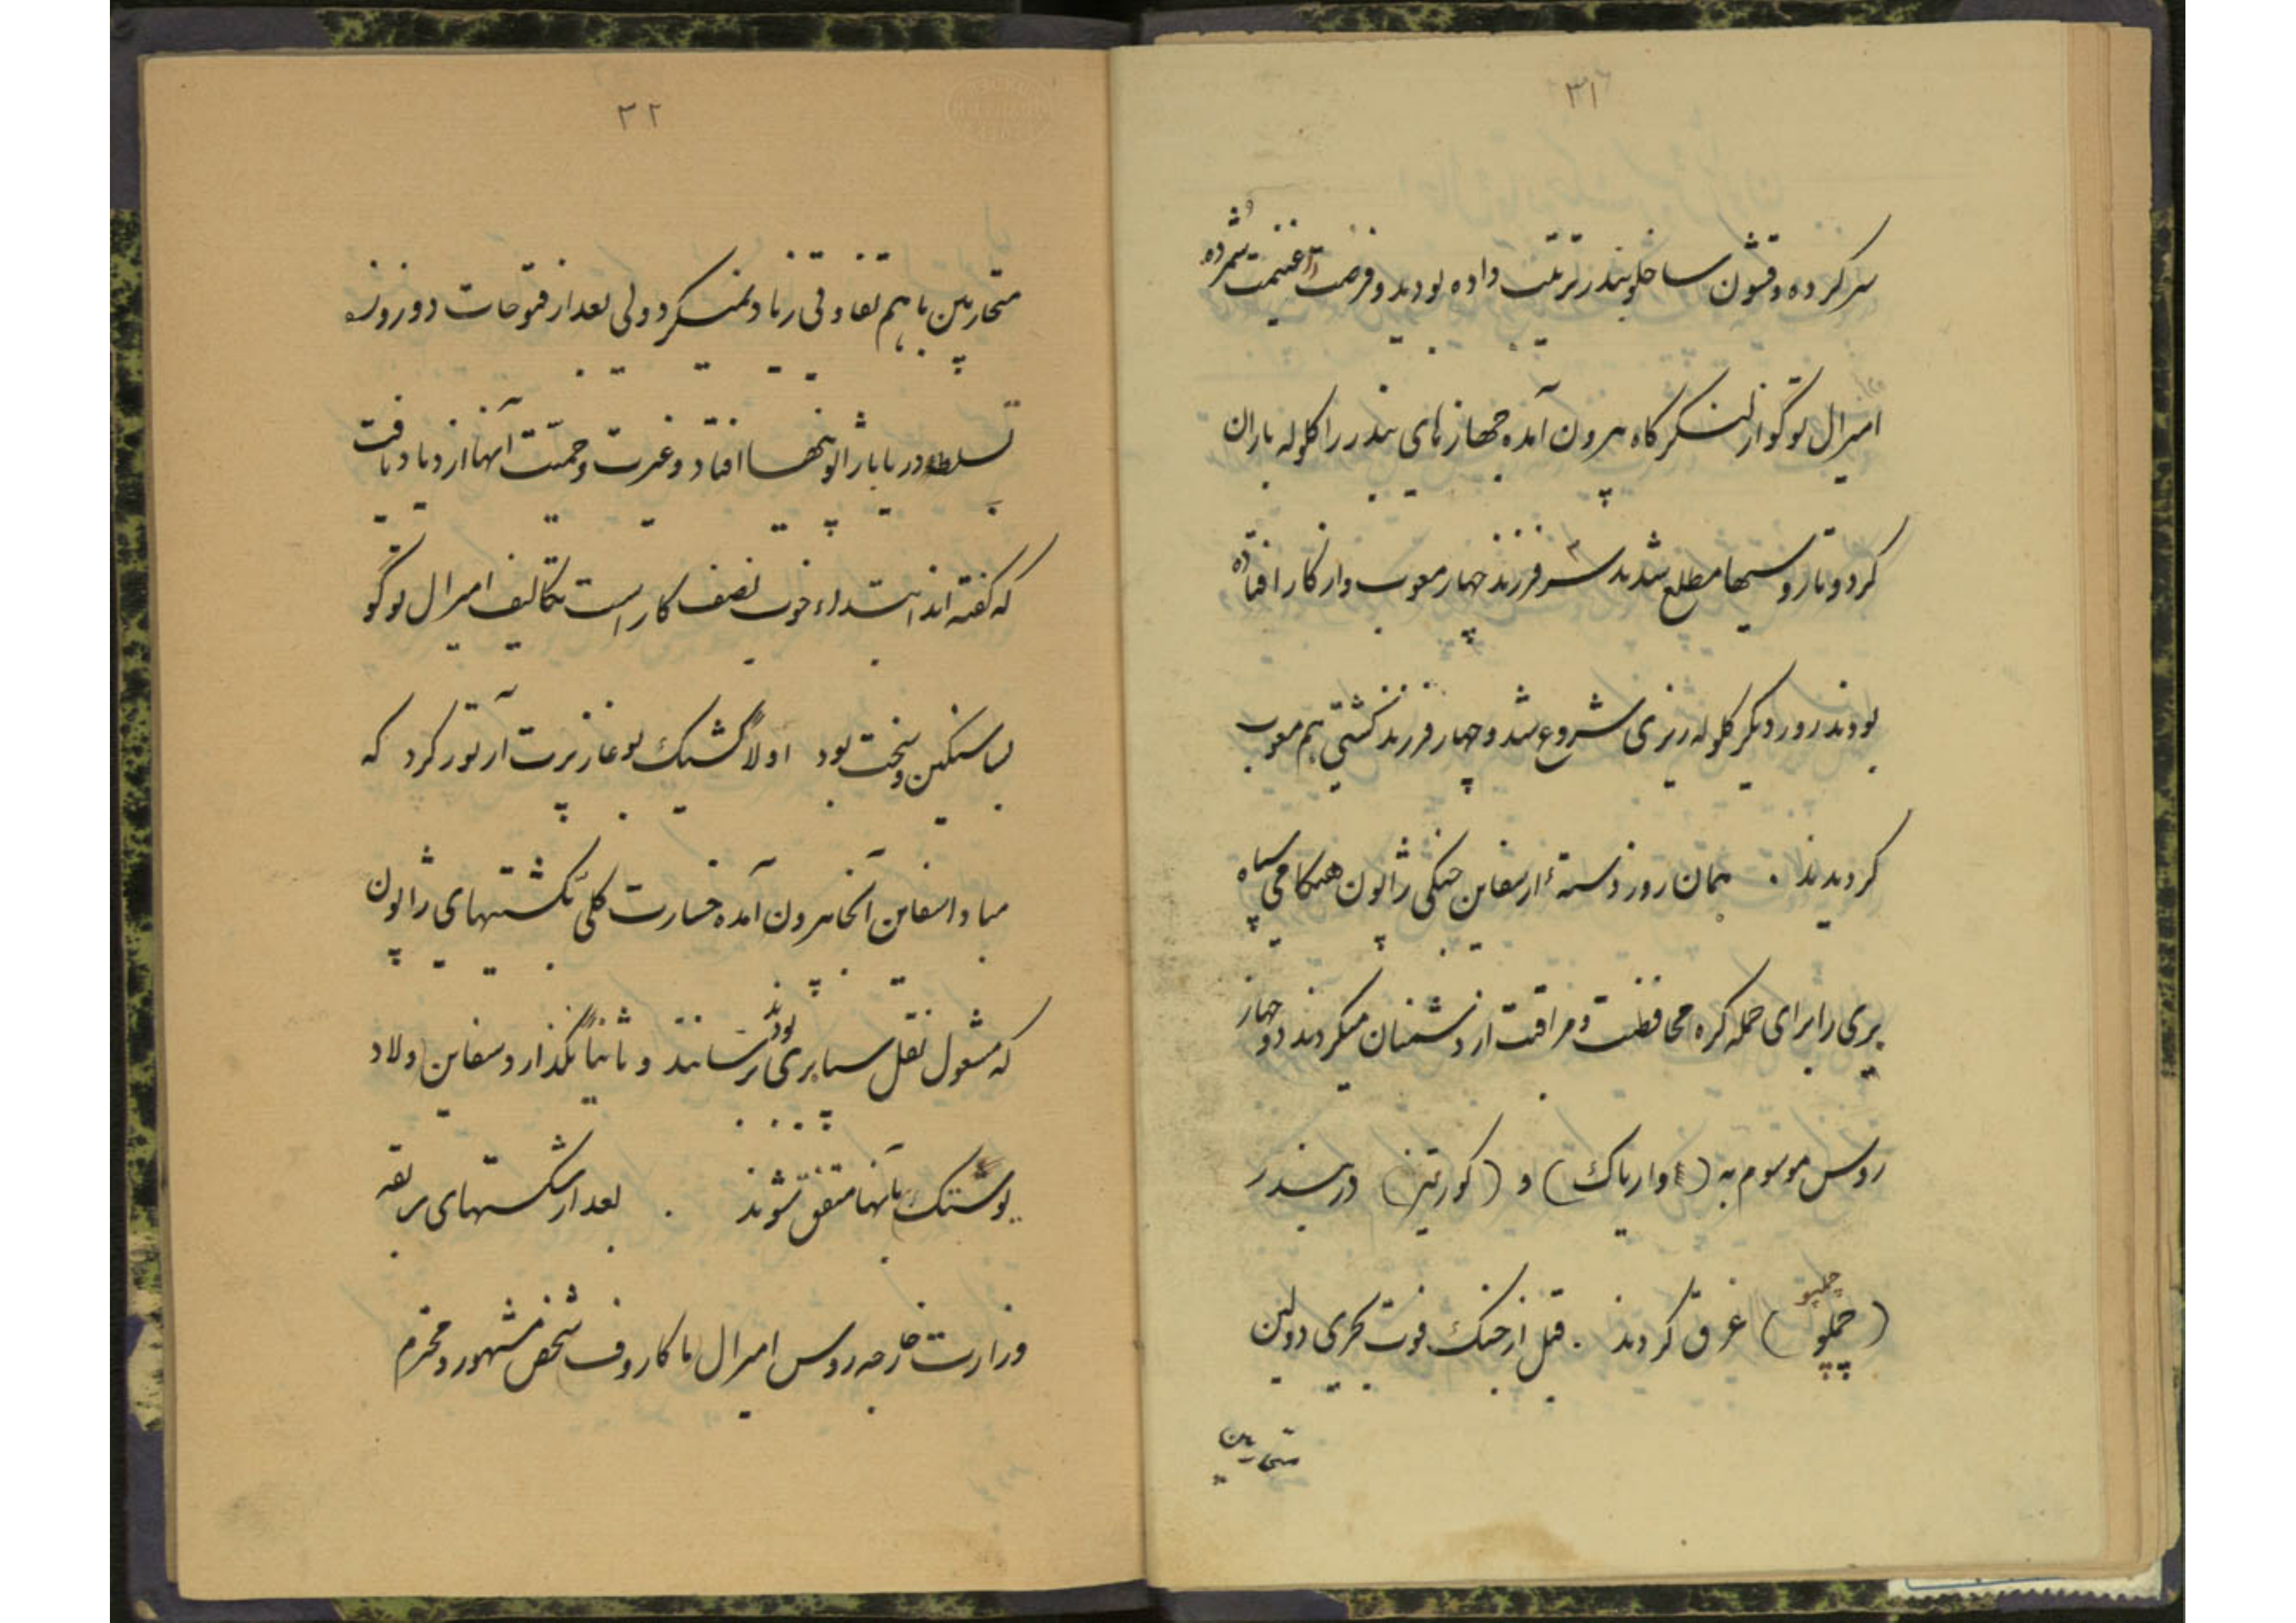 ۳۱
سرکرده و قشون ساخلو بندر ترتیب داده بودید و فرصت را غنیمت شمرده
امیرال توگو از لنگرگاه بیرون آمده جهازهای بندر را گلوله باران
کرد و تا روسیها مطلع شدند سه فرزند جهاز معیوب و از کار افتاده
بودند روز دیگر گلوله ریزی شروع شد و چهار فرزند کشتی هم معیوب
گردیدند . همان روز دسته ٔ از سفاین جنگی ژاپون هنگامی سپاه
پری را برای حمله کره محافظت و مراقبت از دشمنان میکردند دو جهاز
روس موسوم به (واریاک) و (کوریتز) در بندر
(چمپلو) چمپو غرق کردند . قبل از جنگ قوت بحری دولتین
متحاربین
۳۲
متحاربین با هم تفاوتی زیاد نمیکرد ولی بعد از فتوحات دو روزه
تسلط دریا با ژاپونیها افتاد و غیرت و حمیّت آنها ازدیاد یافت
که گفته اند ابتداء خوب نصف کار است تکالیف امیرال توگو
بسا سنگین و سخت بود اولاً کشیک بوغاز پرت آرتور کرد که
مبادا سفاین آنجا بیرون آمده خسارت کلّی بکشتیهای ژاپون
که مشغول نقل سپاه بری بودند برسانند و ثانیاً نگذارد سفاین ولاد
یوستک بآنها متفق شوند . بعد از شکستهای سریعه
وزارت خارجه روس امیرال ماکاروف شخص مشهور و محترم